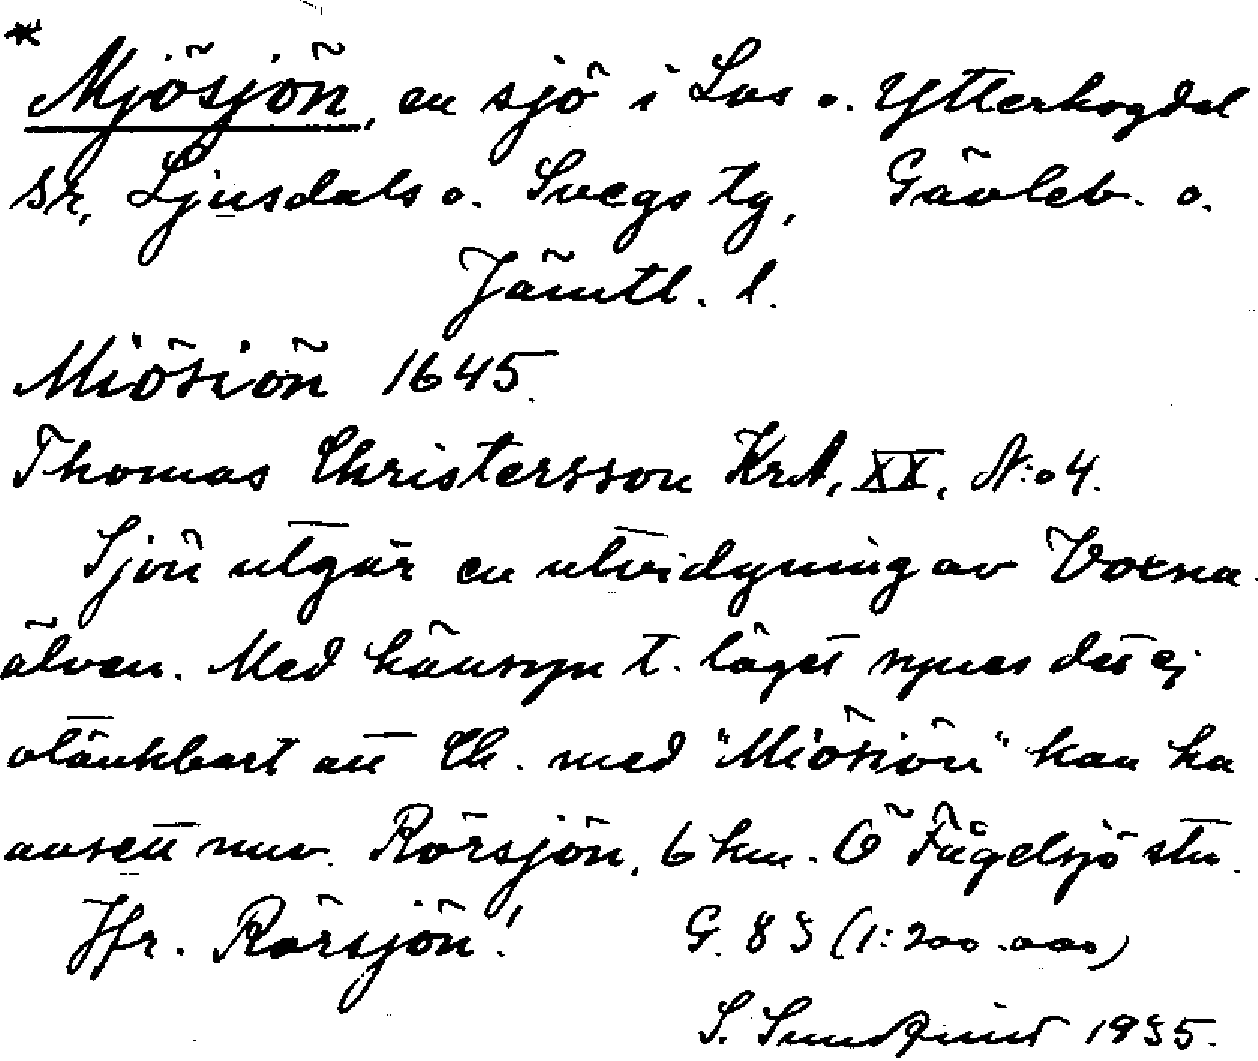 * Mjösjön, en sjö i Los o. Ytterhogdal
sr, Ljusdals o. Svegs tg, Gävleb. o.
Jämtl. l.
Miösiön 1645.
Thomas Christersson KrA, XX, N:o 4.
Sjön utgör en utvidgning av Voxna
älven. Med hänsyn t. läget synes det ej
otänkbart att Ch. med "Miösiön" kan ha
avsett nuv. Rörsjön, 6 km. Ö Fågelsjö stn.
Jfr. Rörsjön!
G. 83 (1:200.000)
S. Sundqvist 1935.